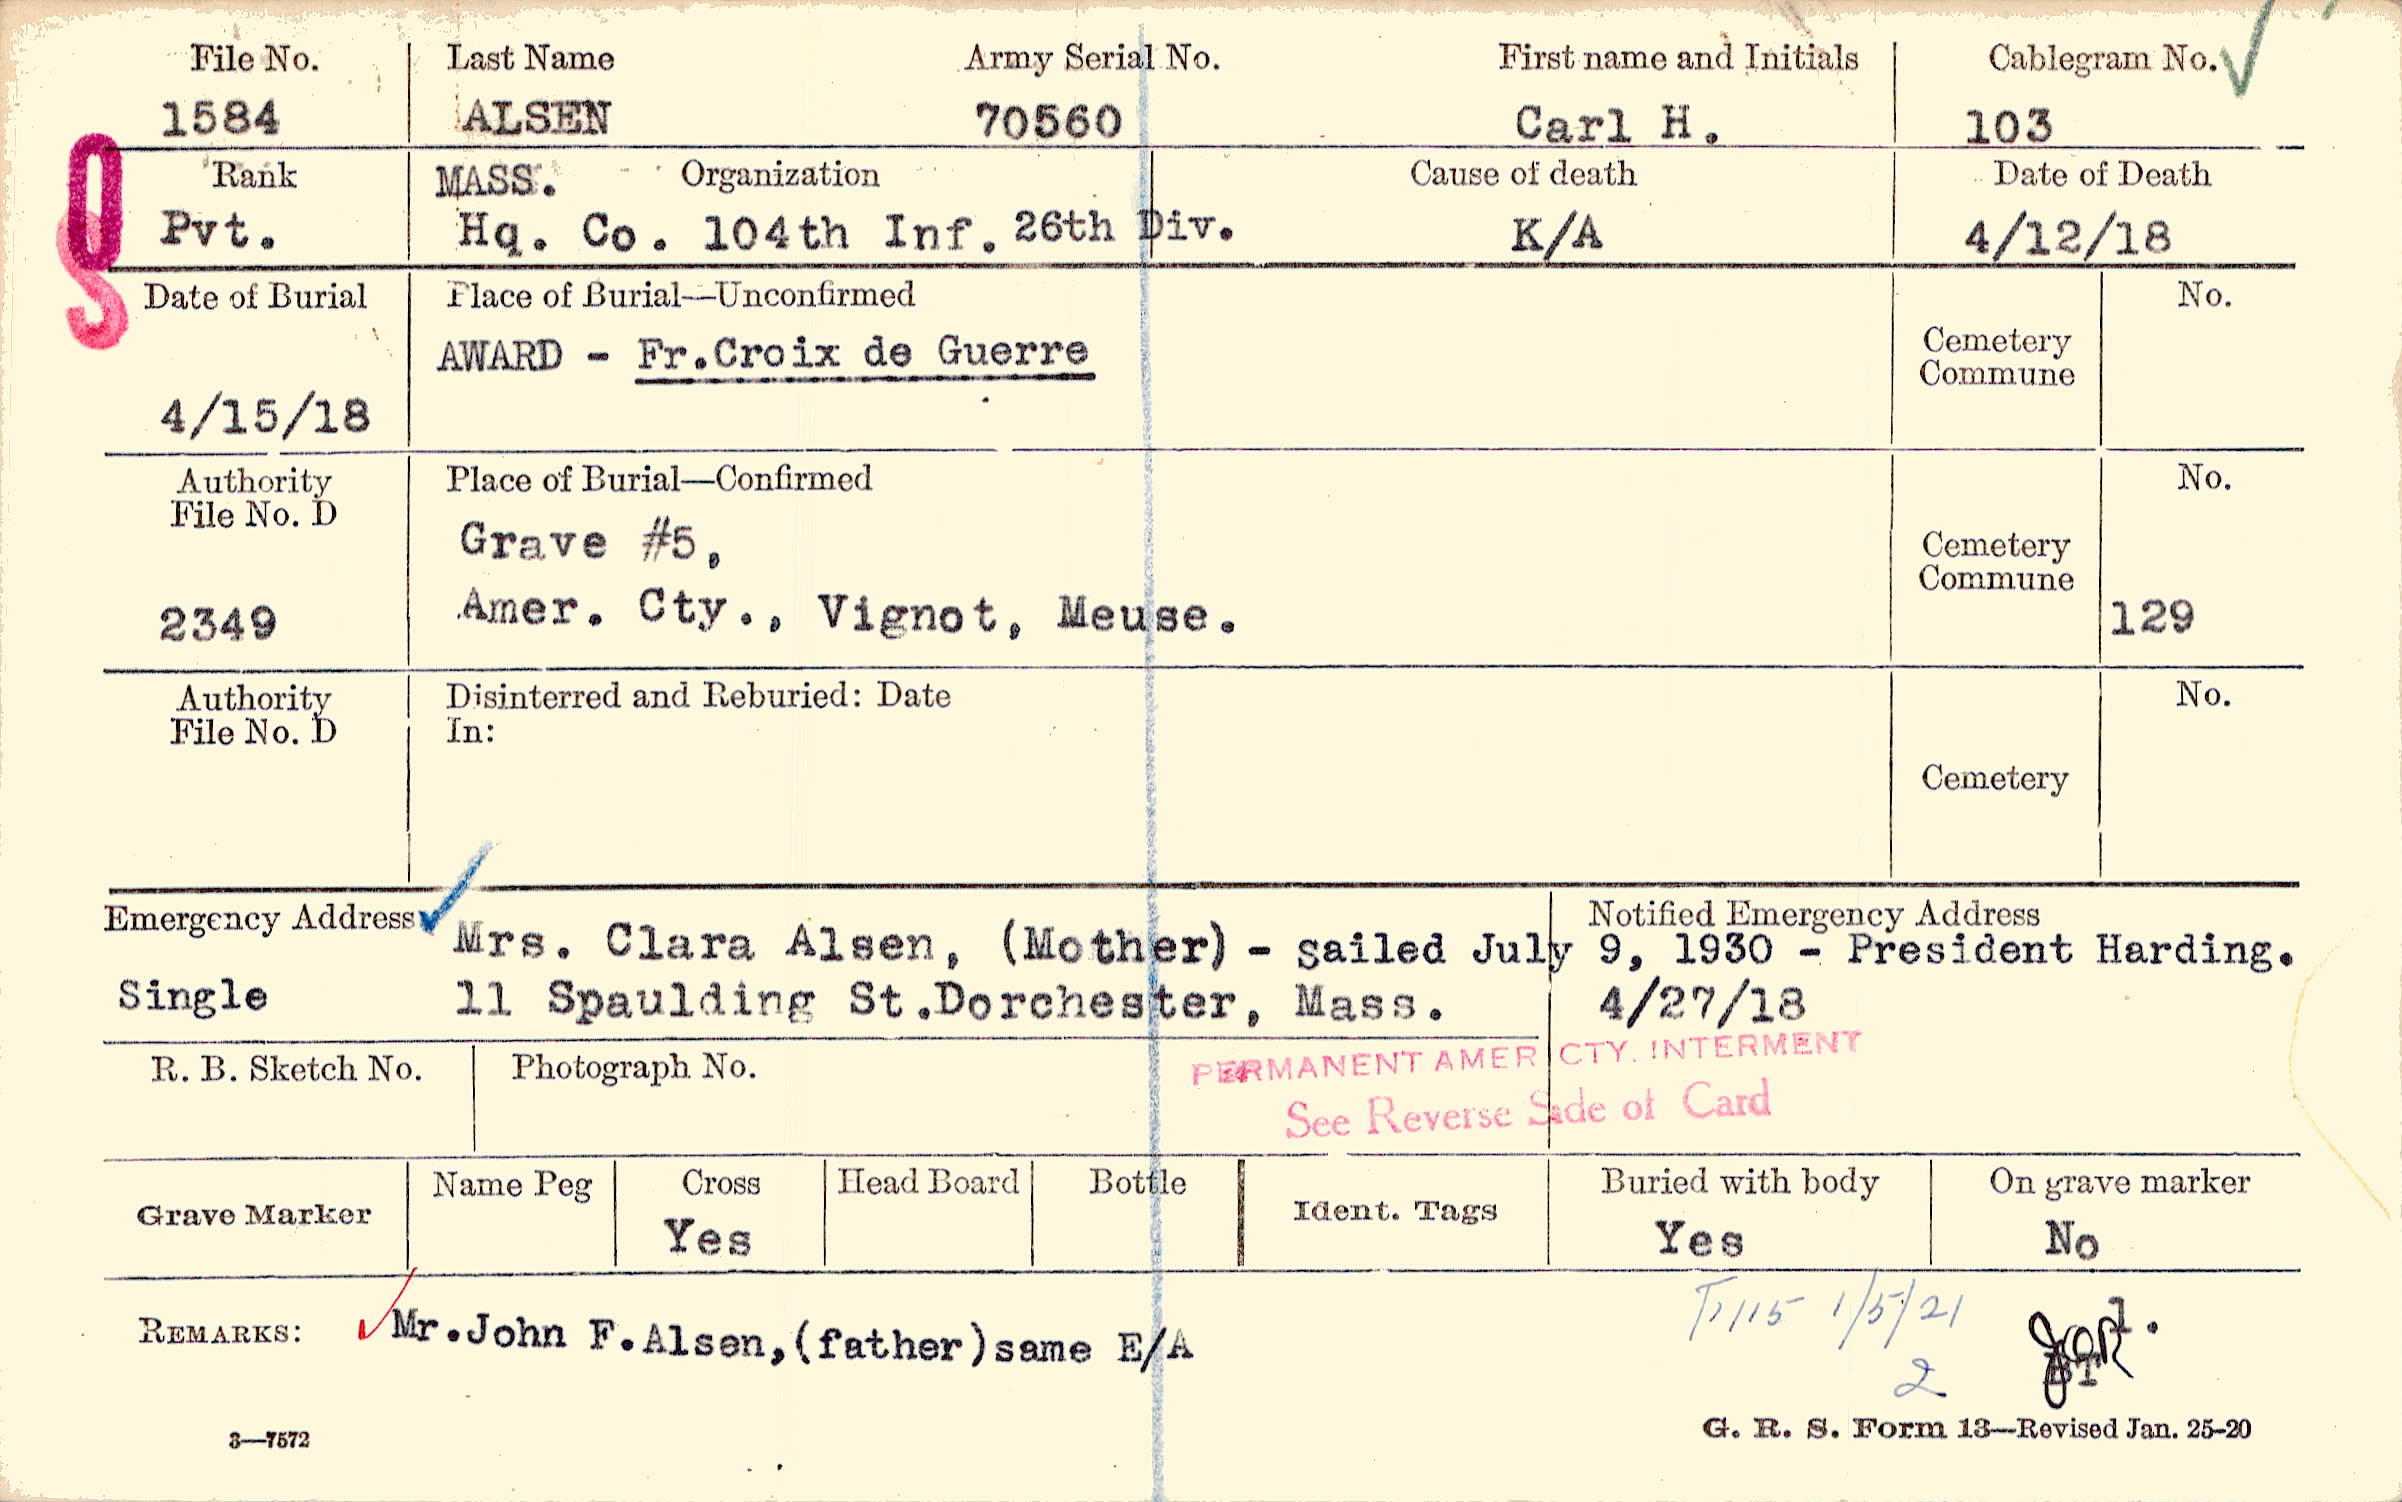 File No. Last Name Army Serial No. First name and Initials Cablegram No.
1584 ALSEN 70560 Carl H. 103
Rank MASS. Organization Cause of death Date of Death
Pvt. Hq. Co. 104th Inf. 26th Div. K/A 4/12/18
O
S
Date of Burial Place of Burial—Unconfirmed No.
AWARD - Fr.Croix de Guerre Cemetery
Commune
4/15/18
Authority Place of Burial—Confirmed No.
File No. D
Grave #5, Cemetery
Commune
2349 Amer. Cty., Vignot, Meuse. 129
Authority Disinterred and Reburied: Date No.
File No. D In:
Cemetery
Emergency Address Notified Emergency Address
Mrs. Clara Alsen, (Mother) - sailed July 9, 1930 - President Harding.
Single 11 Spaulding St.Dorchester, Mass. 4/27/18
R. B. Sketch No. Photograph No. PERMANENT AMER CTY. INTERMENT
See Reverse Side of Card
Grave Marker Name Peg Cross Head Board Bottle Ident. Tags Buried with body On grave marker
Yes Yes No
REMARKS: Mr.John F.Alsen,(father)same E/A
1/5/21
2
3—7572 G. R. S. Form 13—Revised Jan. 25-20